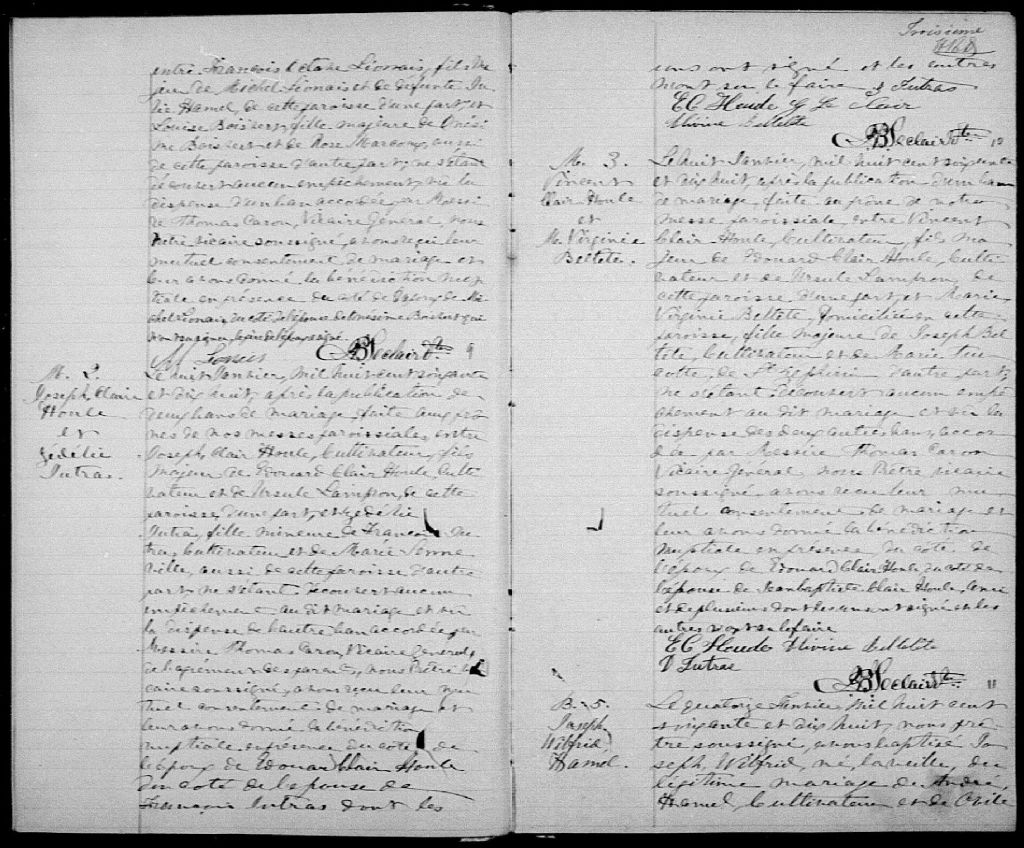 entre François Octave Lionais, fils ma
jeur de Michel Lionais et de défunte Ju
lie Hamel de cette paroisse d'une part, et
Louise Boisvert, fille majeure de Onési
me Boisvert et de Rose Marcoux, aussi
de cette paroisse d'autre part, ne s'étant
découvert aucun empêchement, vu la
dispense d'un ban accordée par Messi
re Thomas Caron, Vicaire Général, nous
Prêtre vicaire soussigné, avons reçu leur
mutuel consentement de mariage et
leur avons donné la bénédiction nup
tiale en présence du côté de l'époux de Mi
chel Lionais, du côté de l'épouse de Onésime Boisvert qui
n'ont su signer, le père de l'époux a signé.
M Lonais JB Leclair Ptre 9
M. 2.
Joseph Claire
Houle
et
Zédélie
Jutras.
Le huit Janvier, mil huit cent soixante
et dix huit, après la publication de
deux bans de mariage faite aux prô
nes de nos messes paroissiales, entre
Joseph Clair Houle, Cultivateur, fils
majeur de Edouard Clair Houle, Culti
vateur et de Ursule Lampron, de cette
paroisse, d'une part, et Zédélie
Jutra, fille mineure de François Ju
tra, Cultivateur et de Marie Jenne
ville, aussi de cette paroisse d'autre
part, ne s'étant découvert aucun
empêchement au dit mariage et vu
la dispense de l'autre ban accordée par
Messire Thomas Caron, Vicaire Général,
de l'agrément des parents, nous Prêtre vi
caire soussigné, avons reçu leur mu
tuel consentement de mariage et
leur avons donné la bénédiction
nuptiale en présence du côté de
l'époux de Edouard Clair Houle
du côté de l'épouse de
François Jutras dont les
Troisième
uns ont signé et les autres
n'ont su le faire J Jutras
EC Houde G Le Clair
Mivine Beltete
JB Leclair Ptre 10
M. 3.
Vincent
Clair Houle
et
M. Virginie
Beltete.
Le huit Janvier, mil huit cent soixante
et dix huit, après la publication d'un ban
de mariage, faite au prône de notre
messe paroissiale, entre Vincent
Clair Houle, Cultivateur, fils ma
jeur de Edouard Clair Houle, Culti
vateur et de Ursule Lampron, de
cette paroisse d'une part, et Marie
Virginie Beltete, domiciliée en cette
paroisse, fille majeure de Joseph Bel
tete, Cultivateur et de Marie
de St Zéphirin d'autre part,
ne s'étant découvert aucun empê
chement au dit mariage et vu la
dispense des deux autres bans, accor
dée par Messire Thomas Caron
Vicaire Général nous Prêtre vicaire
soussigné, avons reçu leur mu
tuel consentement de mariage et
leur avons donné la bénédiction
nuptiale en présence du côté de
l'époux de Edouard Clair Houle du côté de
l'épouse de Jean baptiste Clair Houle,
et de plusieurs dont les uns ont signé et les
autres n'ont su le faire
EC Houde Mivine Beltete
V Jutras
JB Leclair Ptre 11
B. 5.
Joseph
Wilfrid
Hamel.
Le quatorze Janvier, mil huit cent
soixante et dix huit, nous prê
tre soussigné, avons baptisé Jo
seph Wilfrid, né la veille, du
légitime mariage de André
Hamel, Cultivateur et de Odile